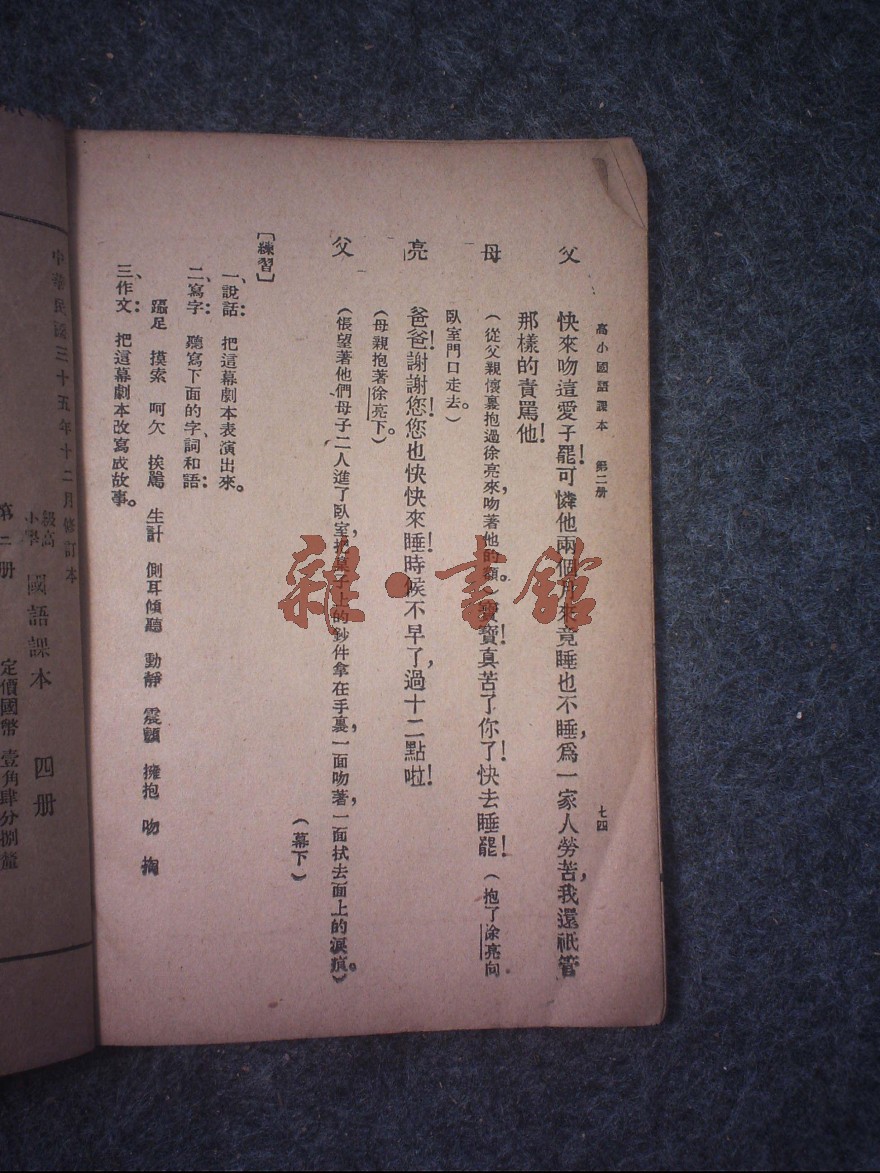 高小國語課本　第二册
七四
父　快來吻這愛子罷！可憐他兩個月來，竟睡也不睡，爲一家人勞苦，我還祇管
那樣的責罵他！
母　（從父親懷裏抱過徐亮來，吻著他的額。）寶寶！真苦了你了！快去睡罷！（抱了徐亮向
臥室門口走去。）
亮　爸爸！謝謝您！您也快快來睡！時候不早了，過十二點啦！
（母親抱著徐亮下。）
父　（悵望著他們母子二人進了臥室，把桌子上的鈔件拿在手裏，一面吻著，一面拭去面上的淚痕。）
（幕下）
［練習］
一、說話：把這幕劇本表演出來。
二、寫字：聽寫下面的字、詞和語：
躡足　摸索　呵欠　挨罵　生計　側耳傾聽　動靜　震顫　擁抱　吻　掬
三、作文：把這幕劇本改寫成故事。
中華民國三十五年十二月修訂本
高級小學　國語課本　四册
第二册　定價國幣壹角肆分捌釐
雜·書館